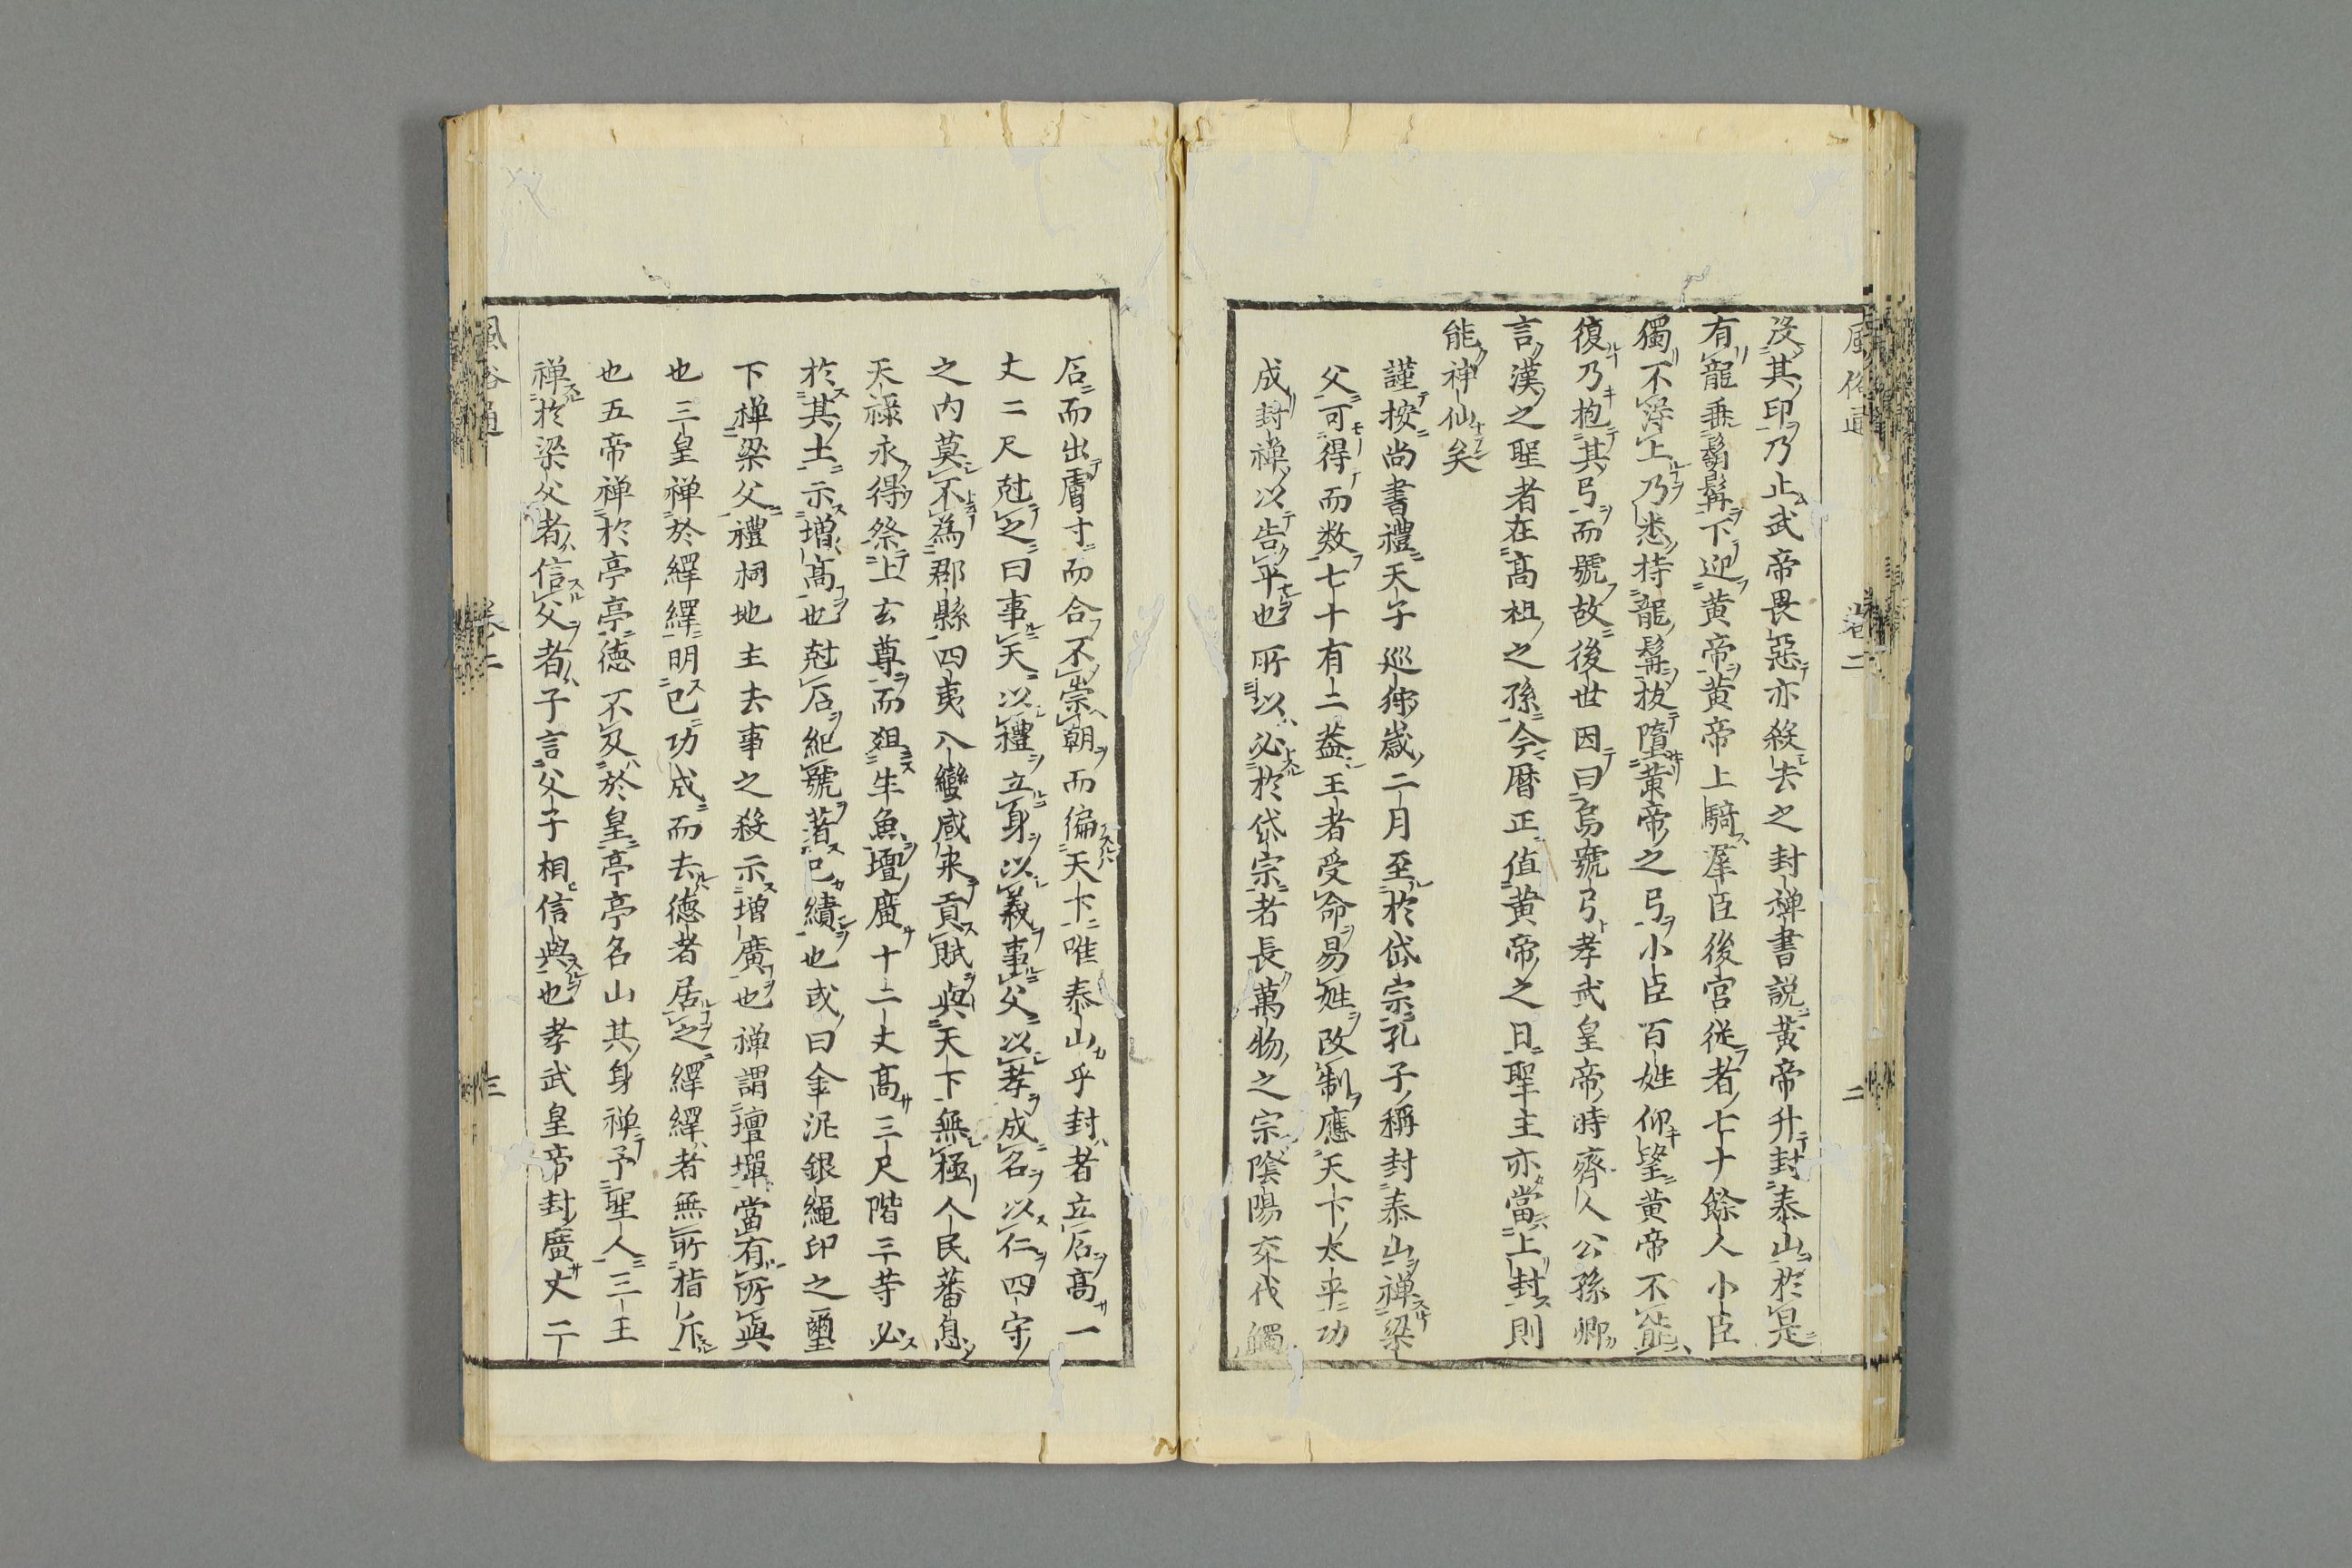 風俗通 卷二 二
沒其印乃止武帝畏惡亦殺去之封禅書説黄帝升封泰山於是
有龍垂鬍髯下迎黄帝黄帝上騎羣臣後宮從者七十餘人小臣
獨不得上乃悉持龍髯拔墮黄帝之弓小臣百姓仰望黄帝不能
復乃抱其弓而號故後世因曰烏號弓孝武皇帝時齊人公孫卿
言漢之聖者在髙祖之孫今暦正値黄帝之日聖主亦當上封則
能神仙矣
謹按尚書禮天子巡狩歳二月至於岱宗孔子稱封泰山禅梁
父可得而数七十有二蓋王者受命易姓改制應天下太平功
成封禅以告平也所以必於岱宗者長萬物之宗陰陽交代觸
石而出膚寸而合不崇朝而徧天下唯泰山乎封者立石髙一
丈二尺尅之曰事天以禮立身以義事父以孝成名以仁四守
之内莫不為郡縣四夷八蠻咸来貢賦與天下無極人民蕃息
天祿永得祭上玄尊而俎生魚壇廣十二丈髙三尺階三等必
於其土示増髙也尅石紀號著已績也或曰金泥銀繩印之璽
下禅梁父禮祠地主去事之殺示増廣也禅謂壇墠當有所與
也三皇禅於繹繹明已功成而去徳者居之繹繹者無所指斥
也五帝禅於亭亭徳不及於皇亭亭名山其身禅予聖人三王
禅於梁父者信父者子言父子相信與也孝武皇帝封廣丈二
風俗通 卷二 三